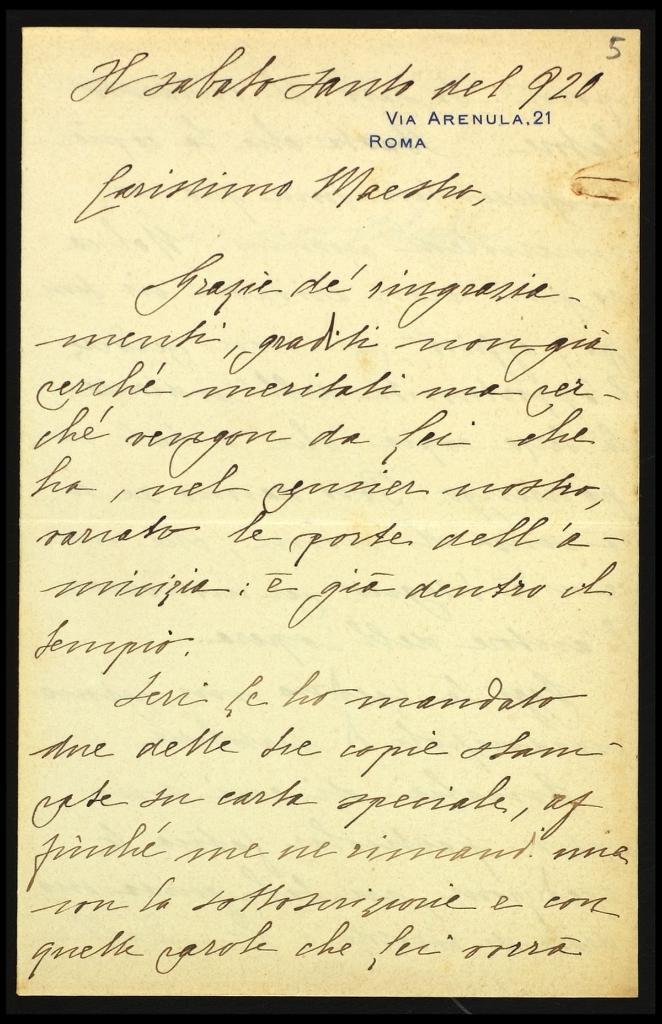 5
Il sabato santo del 920
VIA ARENULA, 21
ROMA
Carissimo Maestro,
Grazie de' ringrazia-
menti, graditi non già
perché meritati ma per-
ché vengon da Lei che
ha, nel pensier nostro,
varcato le porte dell'a-
micizia: è già dentro il
tempio.
Ieri Le ho mandato
due delle tre copie stam-
pate su carta speciale, af
finché me ne rimandi una
con la sottoscrizione e con
quelle parole che Lei vorrà